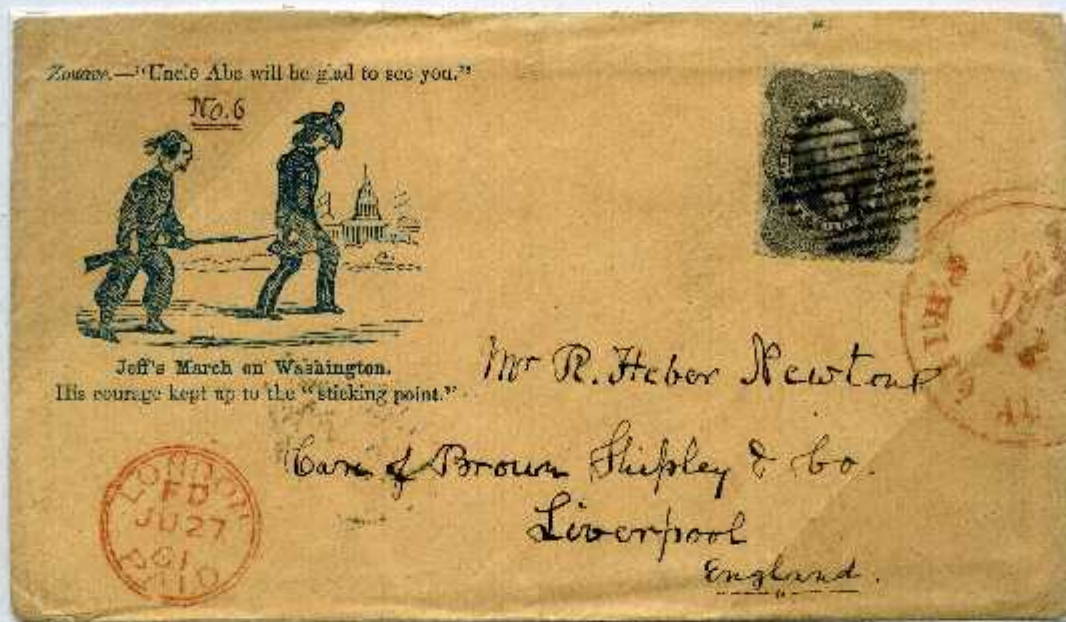 Zouave.—"Uncle Abe will be glad to see you."
No. 6
Jeff's March on Washington.
His courage kept up to the "sticking point."
Mr R. Heber Newton
Care of Brown Shipley & Co.
Liverpool
England.
LONDON
FD
JU 27
61
PAID